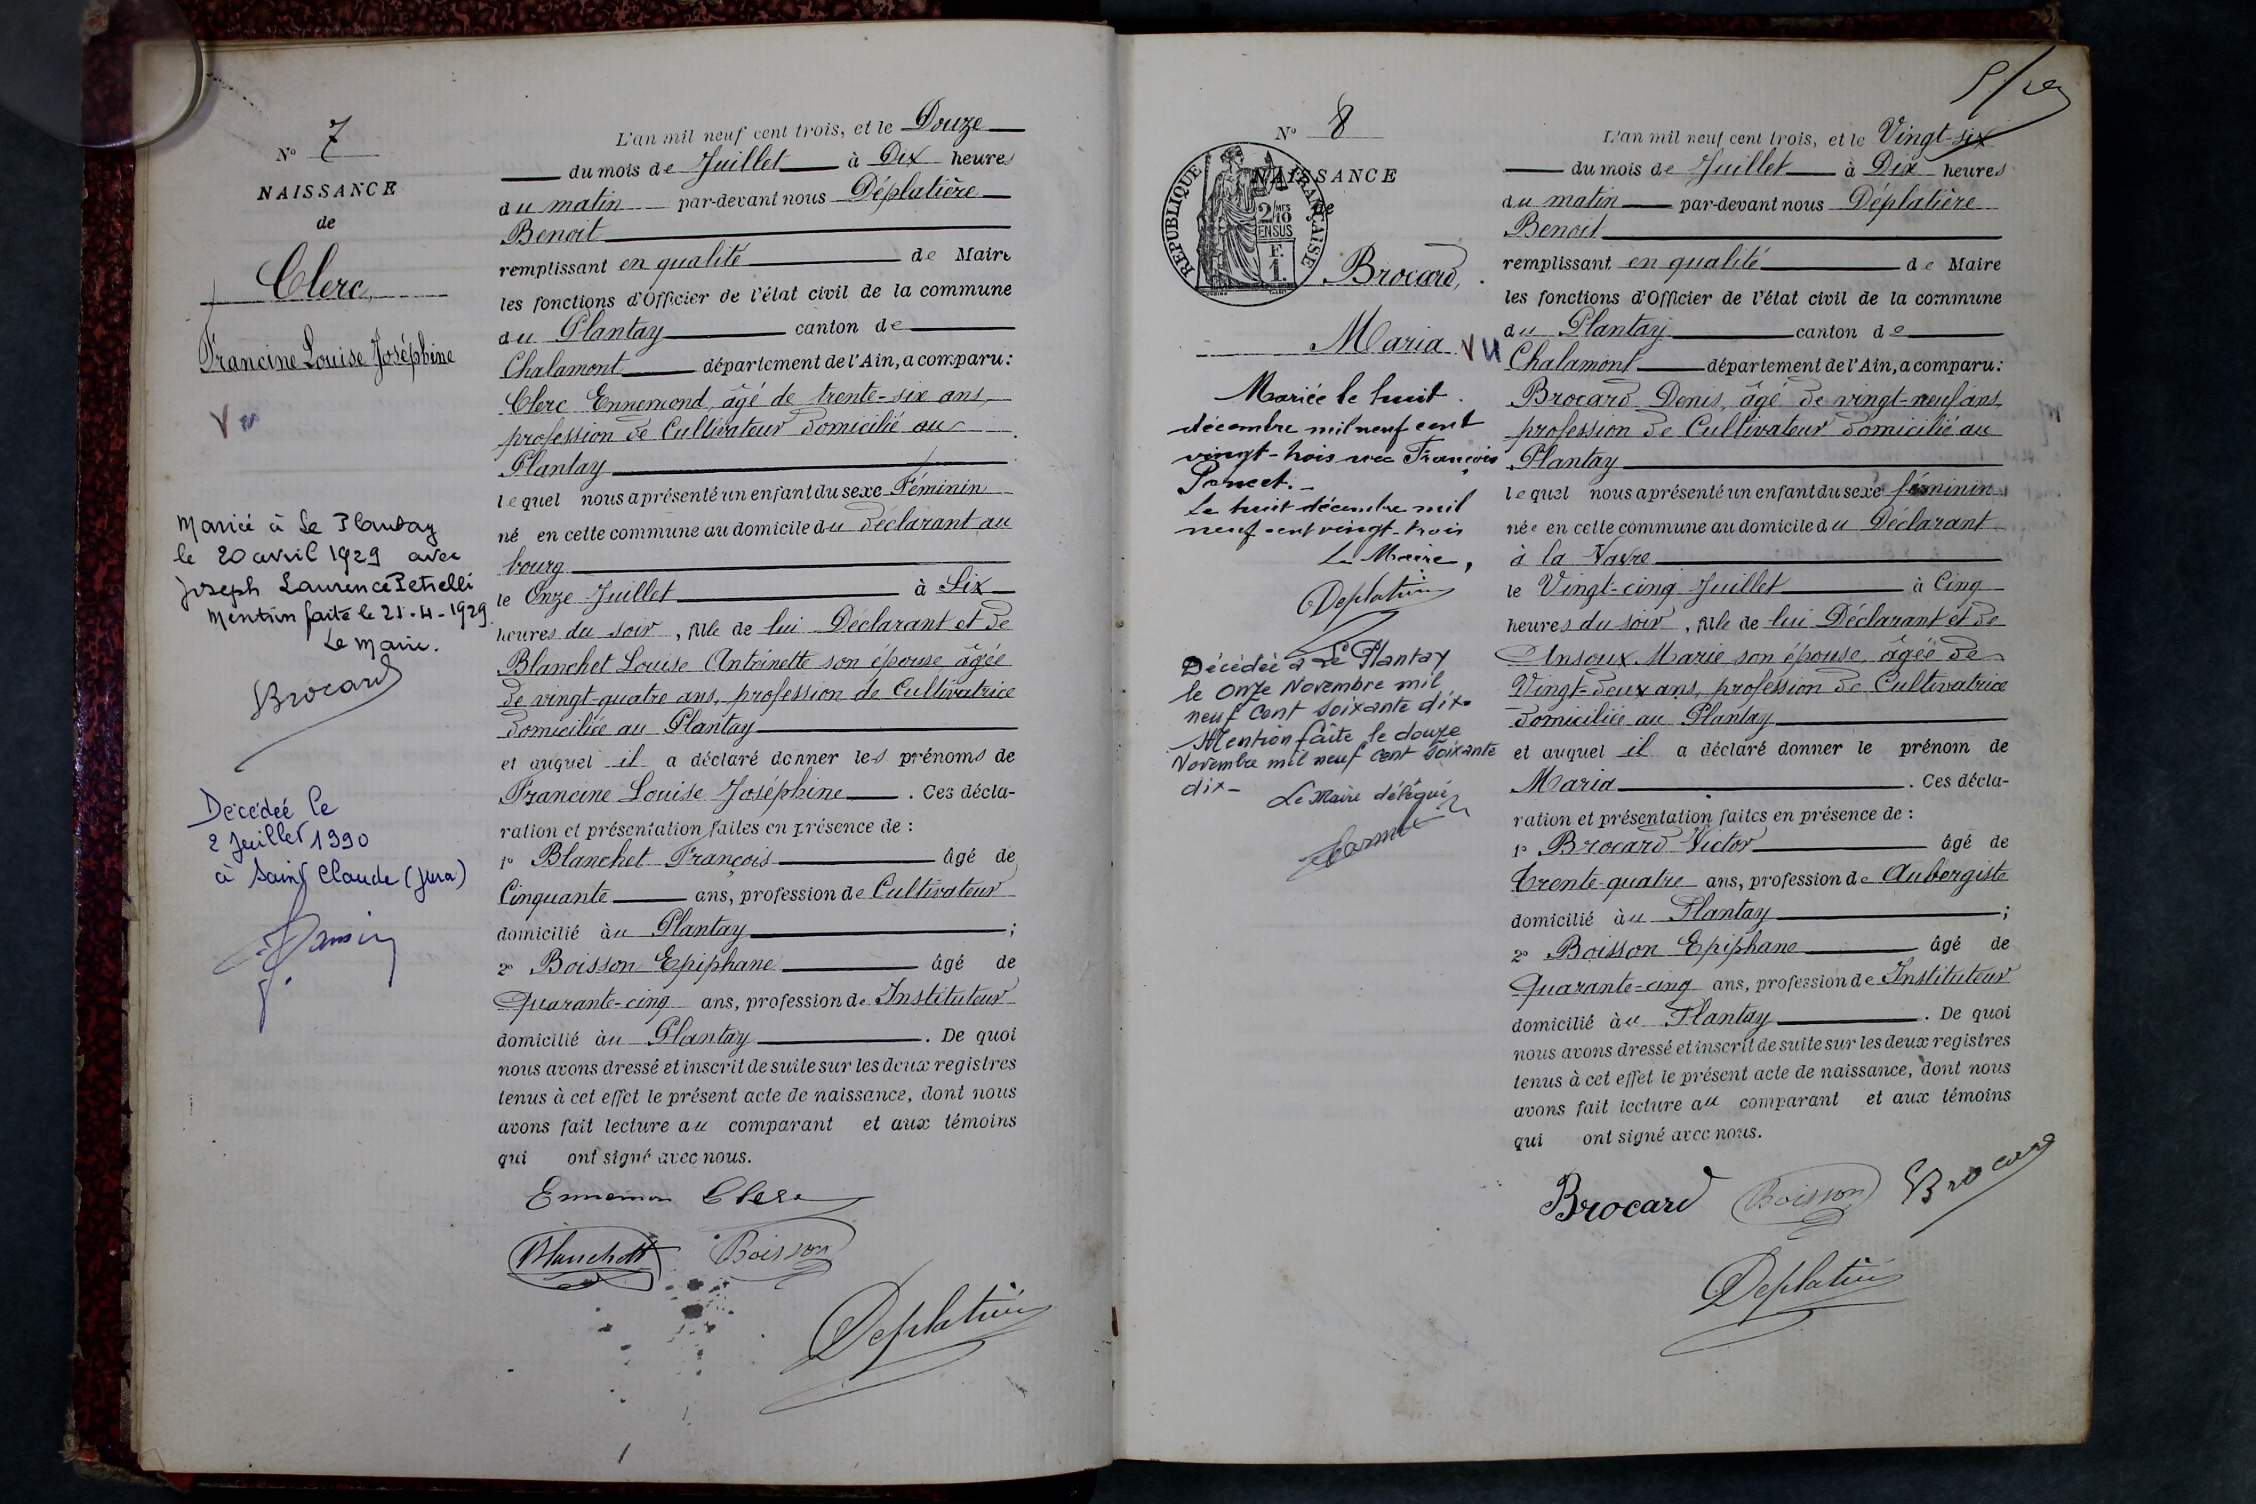 N° 7
NAISSANCE
de
Clerc
Francine Louise Joséphine
Vu
Mariée à Le Plantay
le 20 avril 1929 avec
Joseph Laurence Petrelli
Mention faite le 21-4-1929.
Le Maire.
Brocard
Décédée le
2 Juillet 1990
à Saint Claude (Jura)
L'an mil neuf cent trois, et le Douze
du mois de Juillet à Dix heures
du matin par-devant nous Déplatière
Benoit
remplissant en qualité de Maire
les fonctions d'Officier de l'état civil de la commune
du Plantay canton de
Chalamont département de l'Ain, a comparu:
Clerc Ennemond, âgé de trente-six ans,
profession de Cultivateur domicilié au
Plantay
lequel nous a présenté un enfant du sexe Féminin
né en cette commune au domicile du déclarant au
bourg
le Onze Juillet à Six
heures du soir, fille de lui Déclarant et de
Blanchet Louise Antoinette son épouse âgée
de vingt-quatre ans, profession de Cultivatrice
domiciliée au Plantay
et auquel il a déclaré donner les prénoms de
Francine Louise Joséphine. Ces décla-
ration et présentation faites en présence de :
1° Blanchet François âgé de
Cinquante ans, profession de Cultivateur
domicilié au Plantay ;
2° Boisson Epiphane âgé de
Quarante-cinq ans, profession de Instituteur
domicilié au Plantay. De quoi
nous avons dressé et inscrit de suite sur les deux registres
tenus à cet effet le présent acte de naissance, dont nous
avons fait lecture au comparant et aux témoins
qui ont signé avec nous.
Ennemon Clerc
Blanchet Boisson
Deplatière
N° 8
NAISSANCE
de
RÉPUBLIQUE FRANÇAISE
2/10
MES
EN SUS
F.
1.
Brocard,
Maria
Vu
Mariée le huit
décembre mil neuf cent
vingt-trois avec François
Poncet.
Le huit décembre mil
neuf cent vingt-trois
Le Maire,
Deplatière
Décédée à Le Plantay
le Onze Novembre mil
neuf cent soixante dix.
Mention faite le douze
Novembre mil neuf cent soixante
dix-
Le Maire délégué
L'an mil neuf cent trois, et le Vingt-six
du mois de Juillet à Dix heures
du matin par-devant nous Déplatière
Benoit
remplissant en qualité de Maire
les fonctions d'Officier de l'état civil de la commune
du Plantay canton de
Chalamont département de l'Ain, a comparu:
Brocard Denis, âgé de vingt-neuf ans,
profession de Cultivateur domicilié au
Plantay
lequel nous a présenté un enfant du sexe féminin
née en cette commune au domicile du Déclarant
à la
le Vingt-cinq Juillet à Cinq
heures du soir, fille de lui Déclarant et de
Ansoux Marie son épouse, âgée de
Vingt-deux ans, profession de Cultivatrice
domiciliée au Plantay
et auquel il a déclaré donner le prénom de
Maria. Ces décla-
ration et présentation faites en présence de :
1° Brocard Victor âgé de
Trente-quatre ans, profession de Aubergiste
domicilié au Plantay ;
2° Boisson Epiphane âgé de
Quarante-cinq ans, profession de Instituteur
domicilié au Plantay. De quoi
nous avons dressé et inscrit de suite sur les deux registres
tenus à cet effet le présent acte de naissance, dont nous
avons fait lecture au comparant et aux témoins
qui ont signé avec nous.
Brocard Boisson Brocard
Deplatière